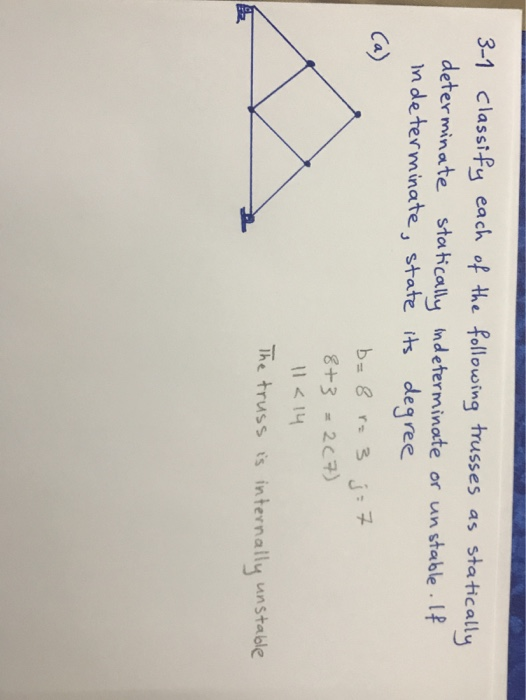 3-1 Classify each of the following trusses as statically
determinate statically indeterminate or unstable. If
indeterminate, state its degree
(a)
b = 8 r = 3 j = 7
8+3 = 2(7)
11 < 14
The truss is internally unstable